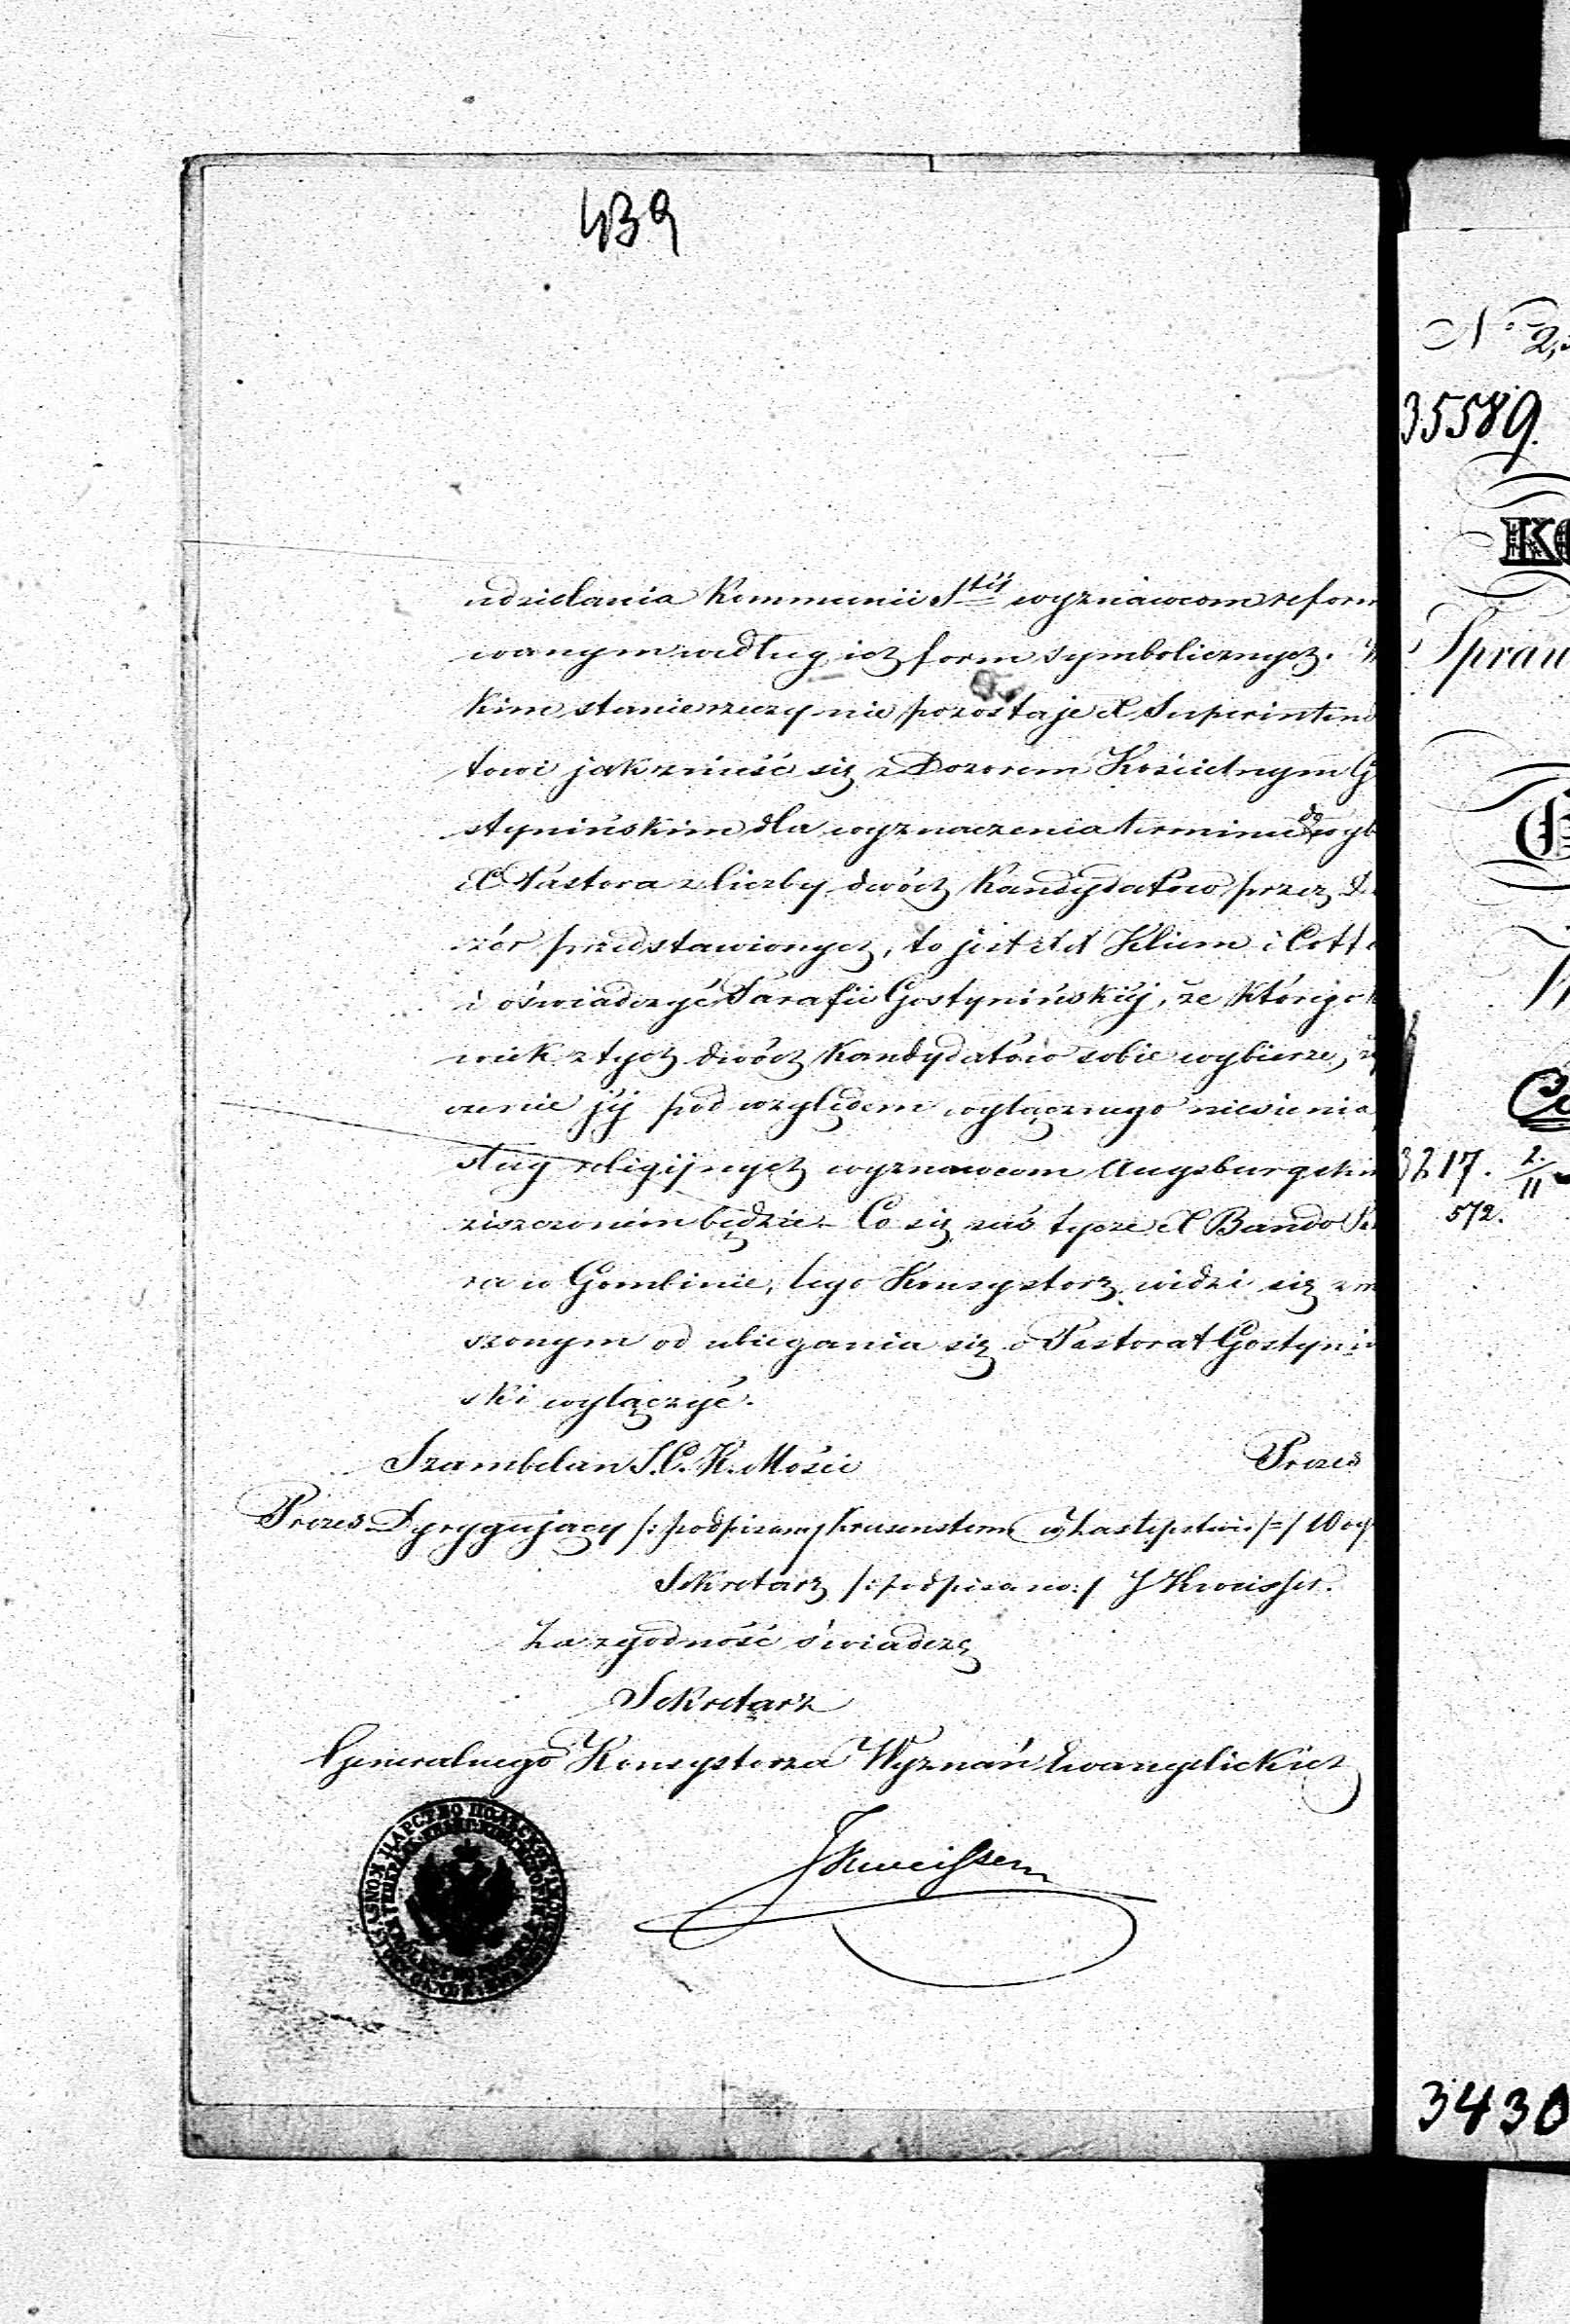 439
udzielania Kommunii Stéj wyznawcom reform
wanym według ich form symbolicznych.
kim stanie rzeczy nie pozostaje X Superinten
towi jak znieść się z Dozorem Kościelnym G
styninskim dla wyznaczenia terminu do wyb
X Pastora z liczby dwóch Kandydatów przez D
zór przedstawionych, to jest XX Kliem i Cott
i oświadczyć Parafii Gostynińskiéj, że któregok
wiek z tych dwóch Kandydatów sobie wybierze, ży
czenie jéj pod względem wyłącznego niesienia
sług religijnych wyznawcom Augsburgskim
ziszczoném będzie. Co się zaś tycze X Bando Pa
ra w Gombinie, tego Konsystorz widzi się zm
szonym od ubiegania się o Pastorat Gostyniń
ski wyłączyć.
Szambelan J. C. K. Mości Prezes
Prezes Dyrygujący /: podpisany Krusenstern w Zastępstwie /=/
Sekretarz /: podpisano :/ J Kweisser.
Za zgodność świadczę
Sekretarz
Generalnego Konsystorza Wyznań Ewangelickich
JKweisser
ЦАРСТВО ПОЛЬСКОЕ
No 2,
35589.
KO
Spraw
3217. 2/11
572.
3430